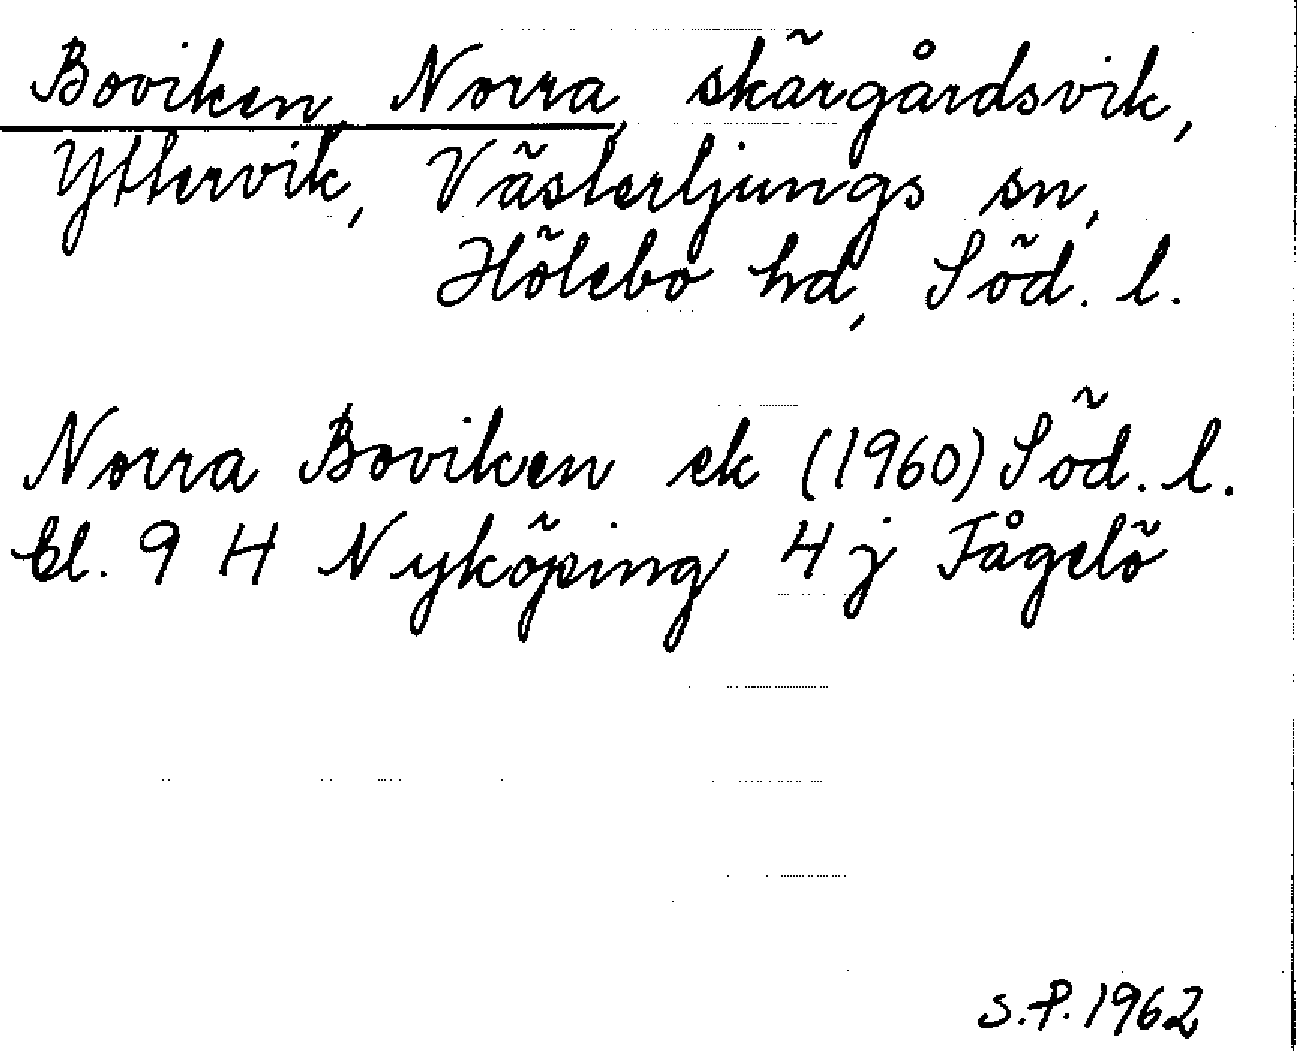 Boviken, Norra, skärgårdsvik,
Yttervik, Västerljungs sn,
Hölebo hd, Söd. l.
Norra Boviken ek (1960) Söd. l.
bl. 9 H Nyköping 4 j Fågelö
S.P. 1962